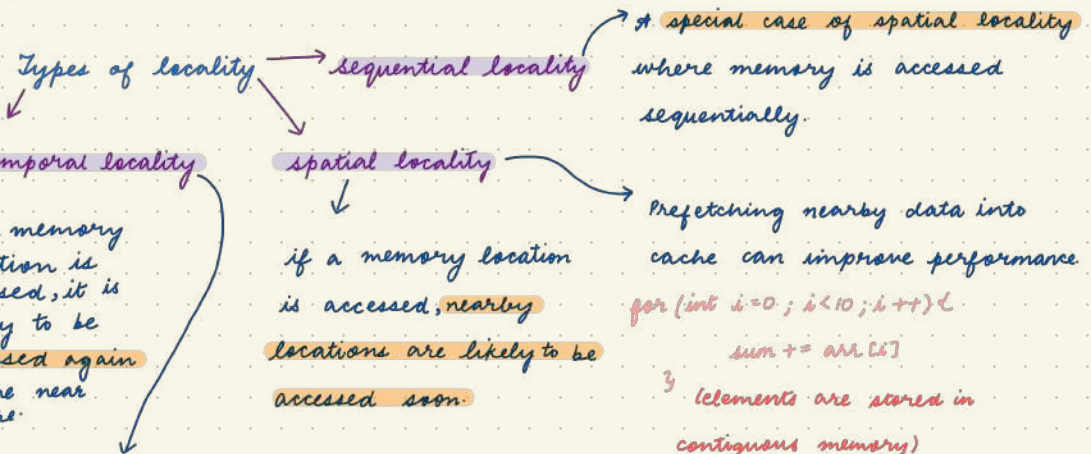 Types of locality
sequential locality
A special case of spatial locality
where memory is accessed
sequentially.
mporal locality
memory
tion is
sed, it is
y to be
sed again
e near
e.
spatial locality
if a memory location
is accessed, nearby
locations are likely to be
accessed soon.
Prefetching nearby data into
cache can improve performance
for (int i=0 ; i<10 ; i++) {
sum += arr [i]
} (elements are stored in
contiguous memory)